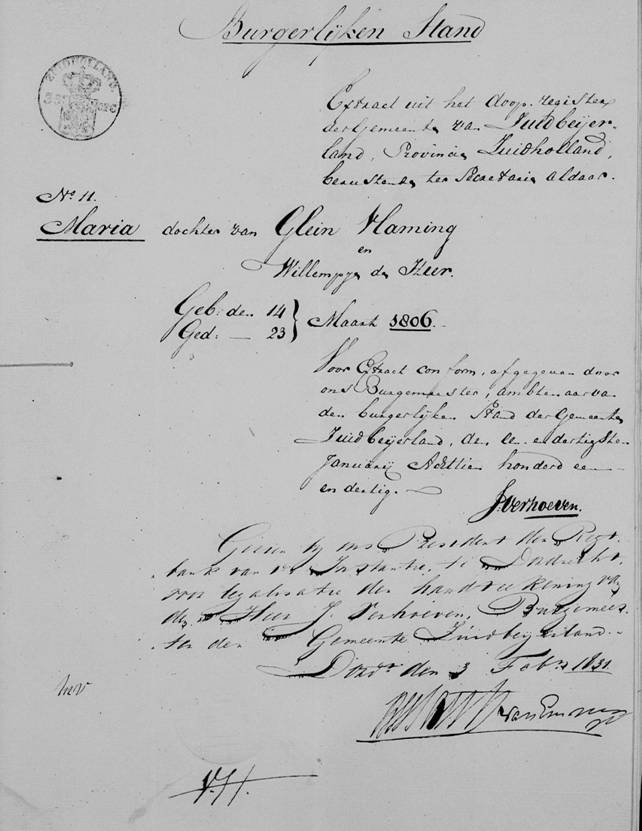 Burgerlijken Stand
ZUIDHOLLAND
Extract uit het doop register
der Gemeente van Zuidbeijer-
land, Provincie Zuidholland,
berustende ter Secretarie aldaar.
No. 11.
Maria dochter van Glein Vlaming
en
Willempje de Keer.
Geb: den 14 } Maart 1806.
Ged: — 23
Voor Extract conform, afgegeven door
ons Burgemeester, ambtenaar van
den burgerlijken Stand der Gemeente
Zuidbeijerland, den een en dertigsten
Januarij Achttien honderd een
en dertig.
J. Verhoeven.
Gezien bij ons President der Regt-
bank van 1e Instantie, te Dordrecht,
voor legalisatie der handteekening van
den Heer J. Verhoeven, Burgemees-
ter der Gemeente Zuidbeijerland.
Dordt den 3 Febr. 1831